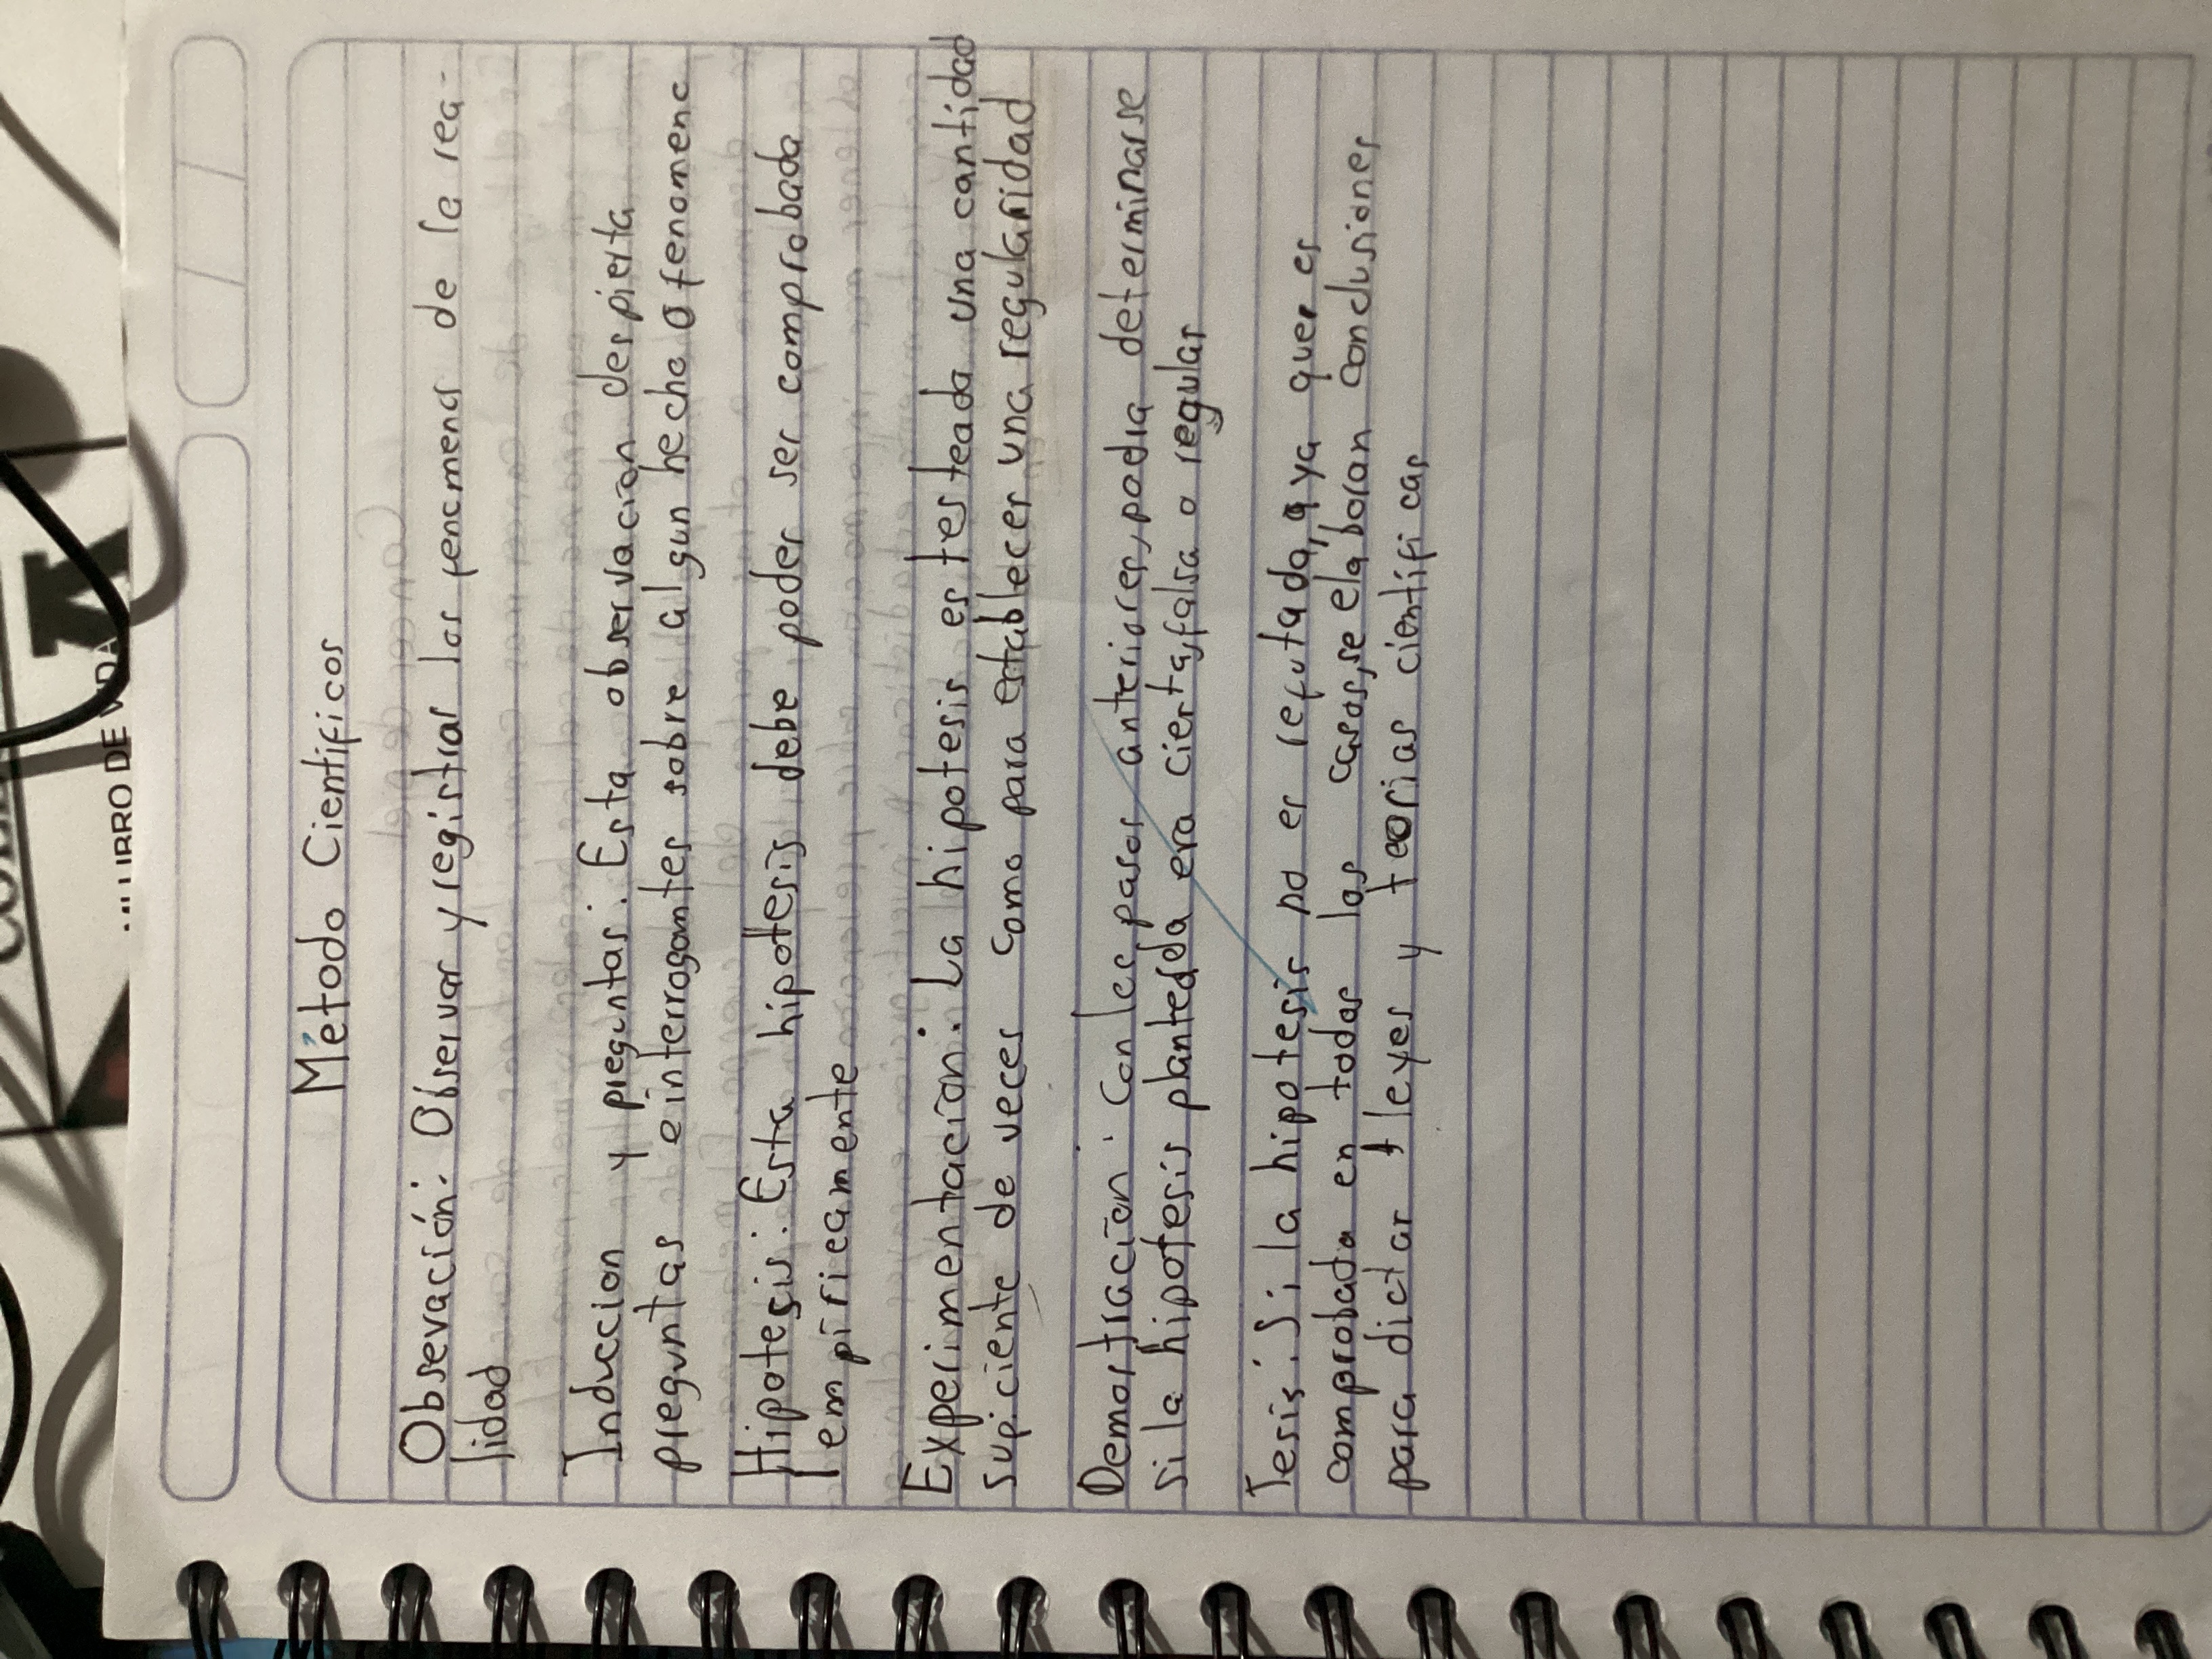 LIBRO DE VIDA
Método Cientificos
Obsevación: Observar y registrar los fencmenos de la rea-
lidad
Induccion y preguntas: Esta observacion despierta
preguntas e interrogantes sobre algun hecho o fenomeno
Hipotesis: Esta hipótesis debe poder ser comprobada
empiricamente
Experimentacion: La hipotesis es testeada una cantidad
supiciente de veces como para establecer una regularidad
Demostracion: Con los pasos anteriores, podia determinarse
si la hipotesis planteda era cierta, falsa o regular
Tesis: Si la hipotesis no es refutada, ya que es
comprobada en todas los casos, se elaboran conclusiones
para dictar leyes y teorias cientificas